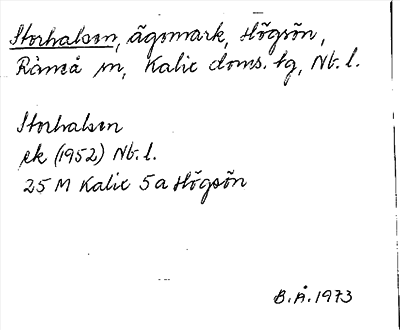 Storhalsen, ägomark, Högsön,
Råneå sn, Kalix doms. tg, Nb. l.
Storhalsen
ek (1952) Nb. l.
25 M Kalix 5a Högsön
B.Å. 1973